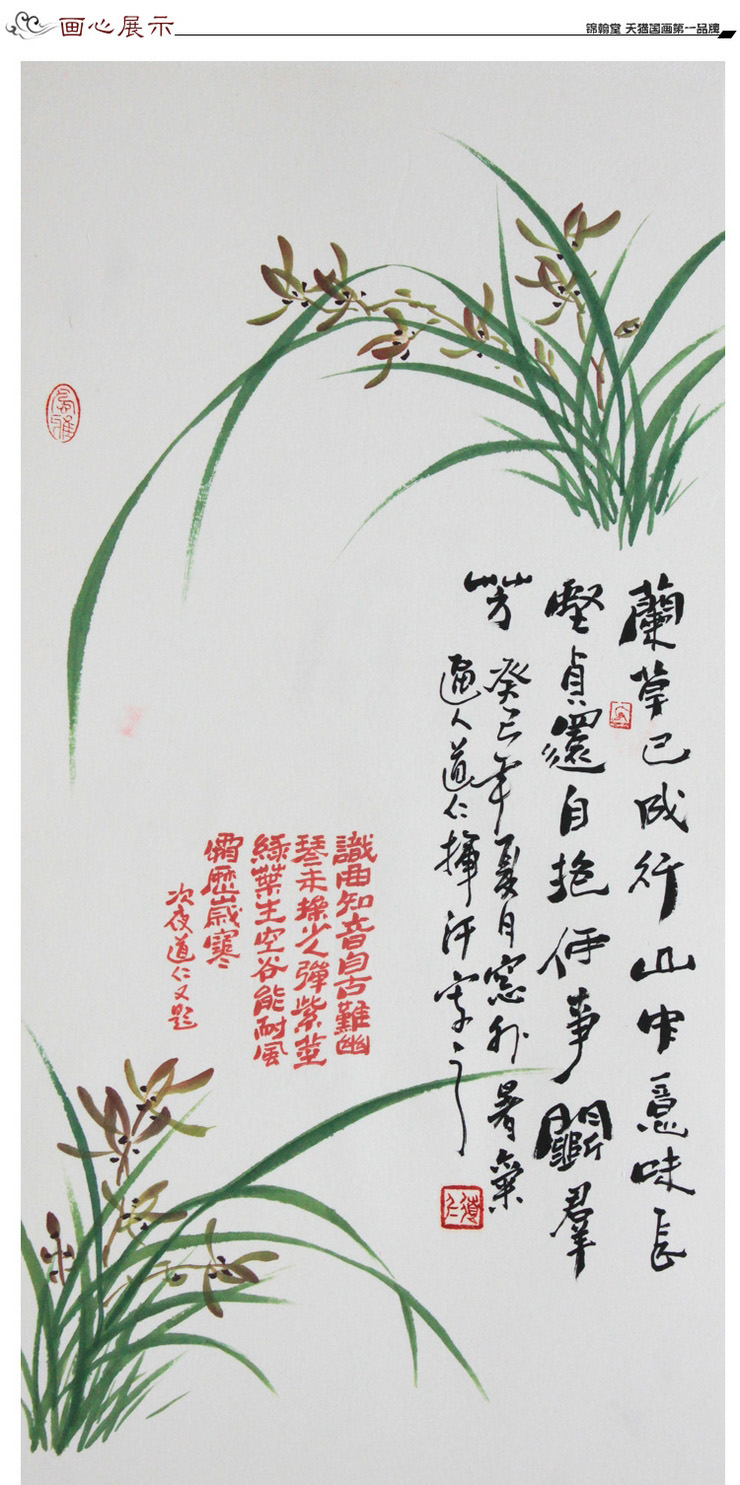 画心展示
锦翰堂 天猫国画第一品牌
蘭草已成行山中意味长
堅貞還自抱何事鬬羣
芳
癸巳年夏月窓外暑氣
逼人道仁揮汗寫之
識曲知音自古難幽
琴未操少人彈紫莖
緑葉生空谷能耐風
霜歷歲寒
次夜道仁又題
道仁